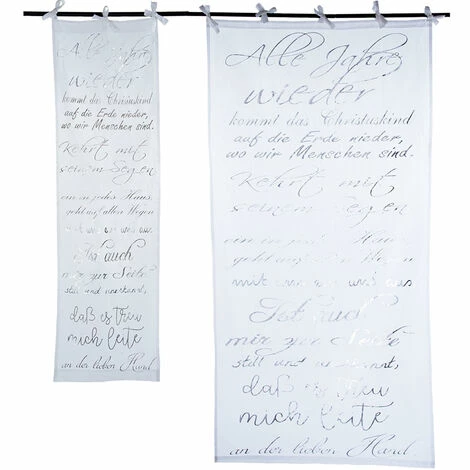 Alle Jahre
wieder
kommt das Christuskind
auf die Erde nieder,
wo wir Menschen sind.
Kehrt mit
seinem Segen
ein in jedes Haus,
geht auf allen Wegen
mit uns ein und aus
Ist auch
mir zur Seite
still und unerkannt,
daß es treu
mich leite
an der lieben Hand.
Alle Jahre
wieder
kommt das Christuskind
auf die Erde nieder,
wo wir Menschen sind.
Kehrt mit
seinem Segen
ein in jedes Haus,
geht auf allen Wegen
mit uns ein und aus
Ist auch
mir zur Seite
still und unerkannt,
daß es treu
mich leite
an der lieben Hand.